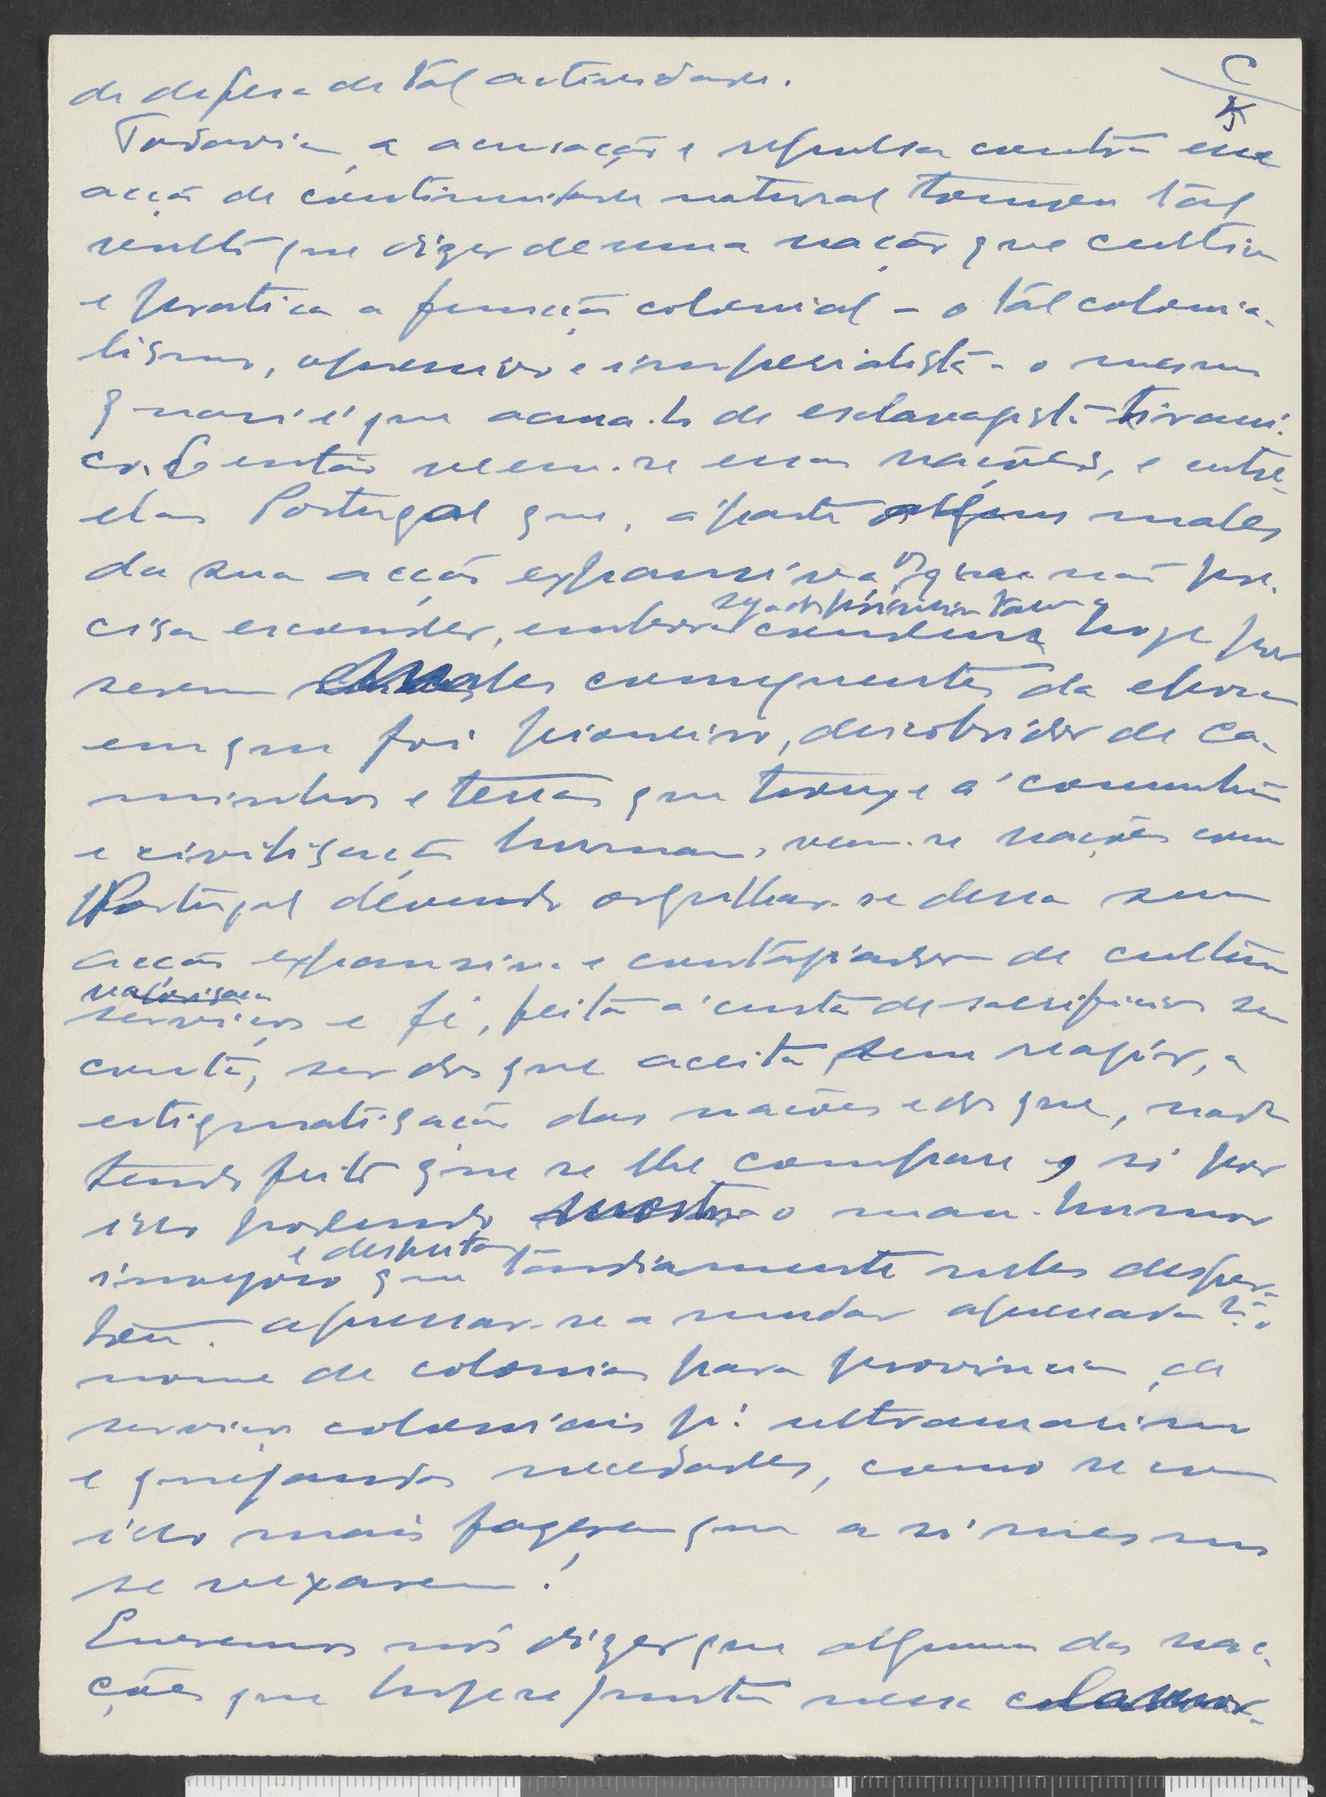 C
5
de defesa de tál actividade.
Todavia a acusação e repulsa contra esse
acção de continuidade natural tomou tál
que dizer de uma nação que cultiva
e pratica a função colonial - o tál colonia-
lismo, opressivo e imperialista - o mesmo
q. quasi é que acusa-lo de esclavagista tirani-
co. E então veem-se essas nações, e entre
elas Portugal que, áparte alguns males
da sua acção expansiva que não pre-
cisa esconder, embora condene hoje por
serem males consequentes da epoca
em que foi pioneiro, descobridor de ca-
minhos e terras que trouxe á comunhão
e civilisação humana, veem-se nações como
Portugal devendo orgulhar-se dessa sua
acção expansiva e contagiadora de cultura
valorisação
serviços e fé, feita á custa de sacrificios sem
conta, ser dos que aceita, sem reagir, a
estigmatisação das nações e dos que, nada
tendo feito que se lhe compare, só por
isso podendo mostrar o mau-humor
e despeito
invejoso que tardiamente neles desper-
tou. apressar-se a mudar apressada
nome de colonias para provincia, de
serviços coloniais p: ultramarinos
e quejandas necedades, como se com
isso mais fizeram que a si mesmos
se vexarem!
Queremos nós dizer que algumas das na-
ções que hoje se junta nesse clamor-